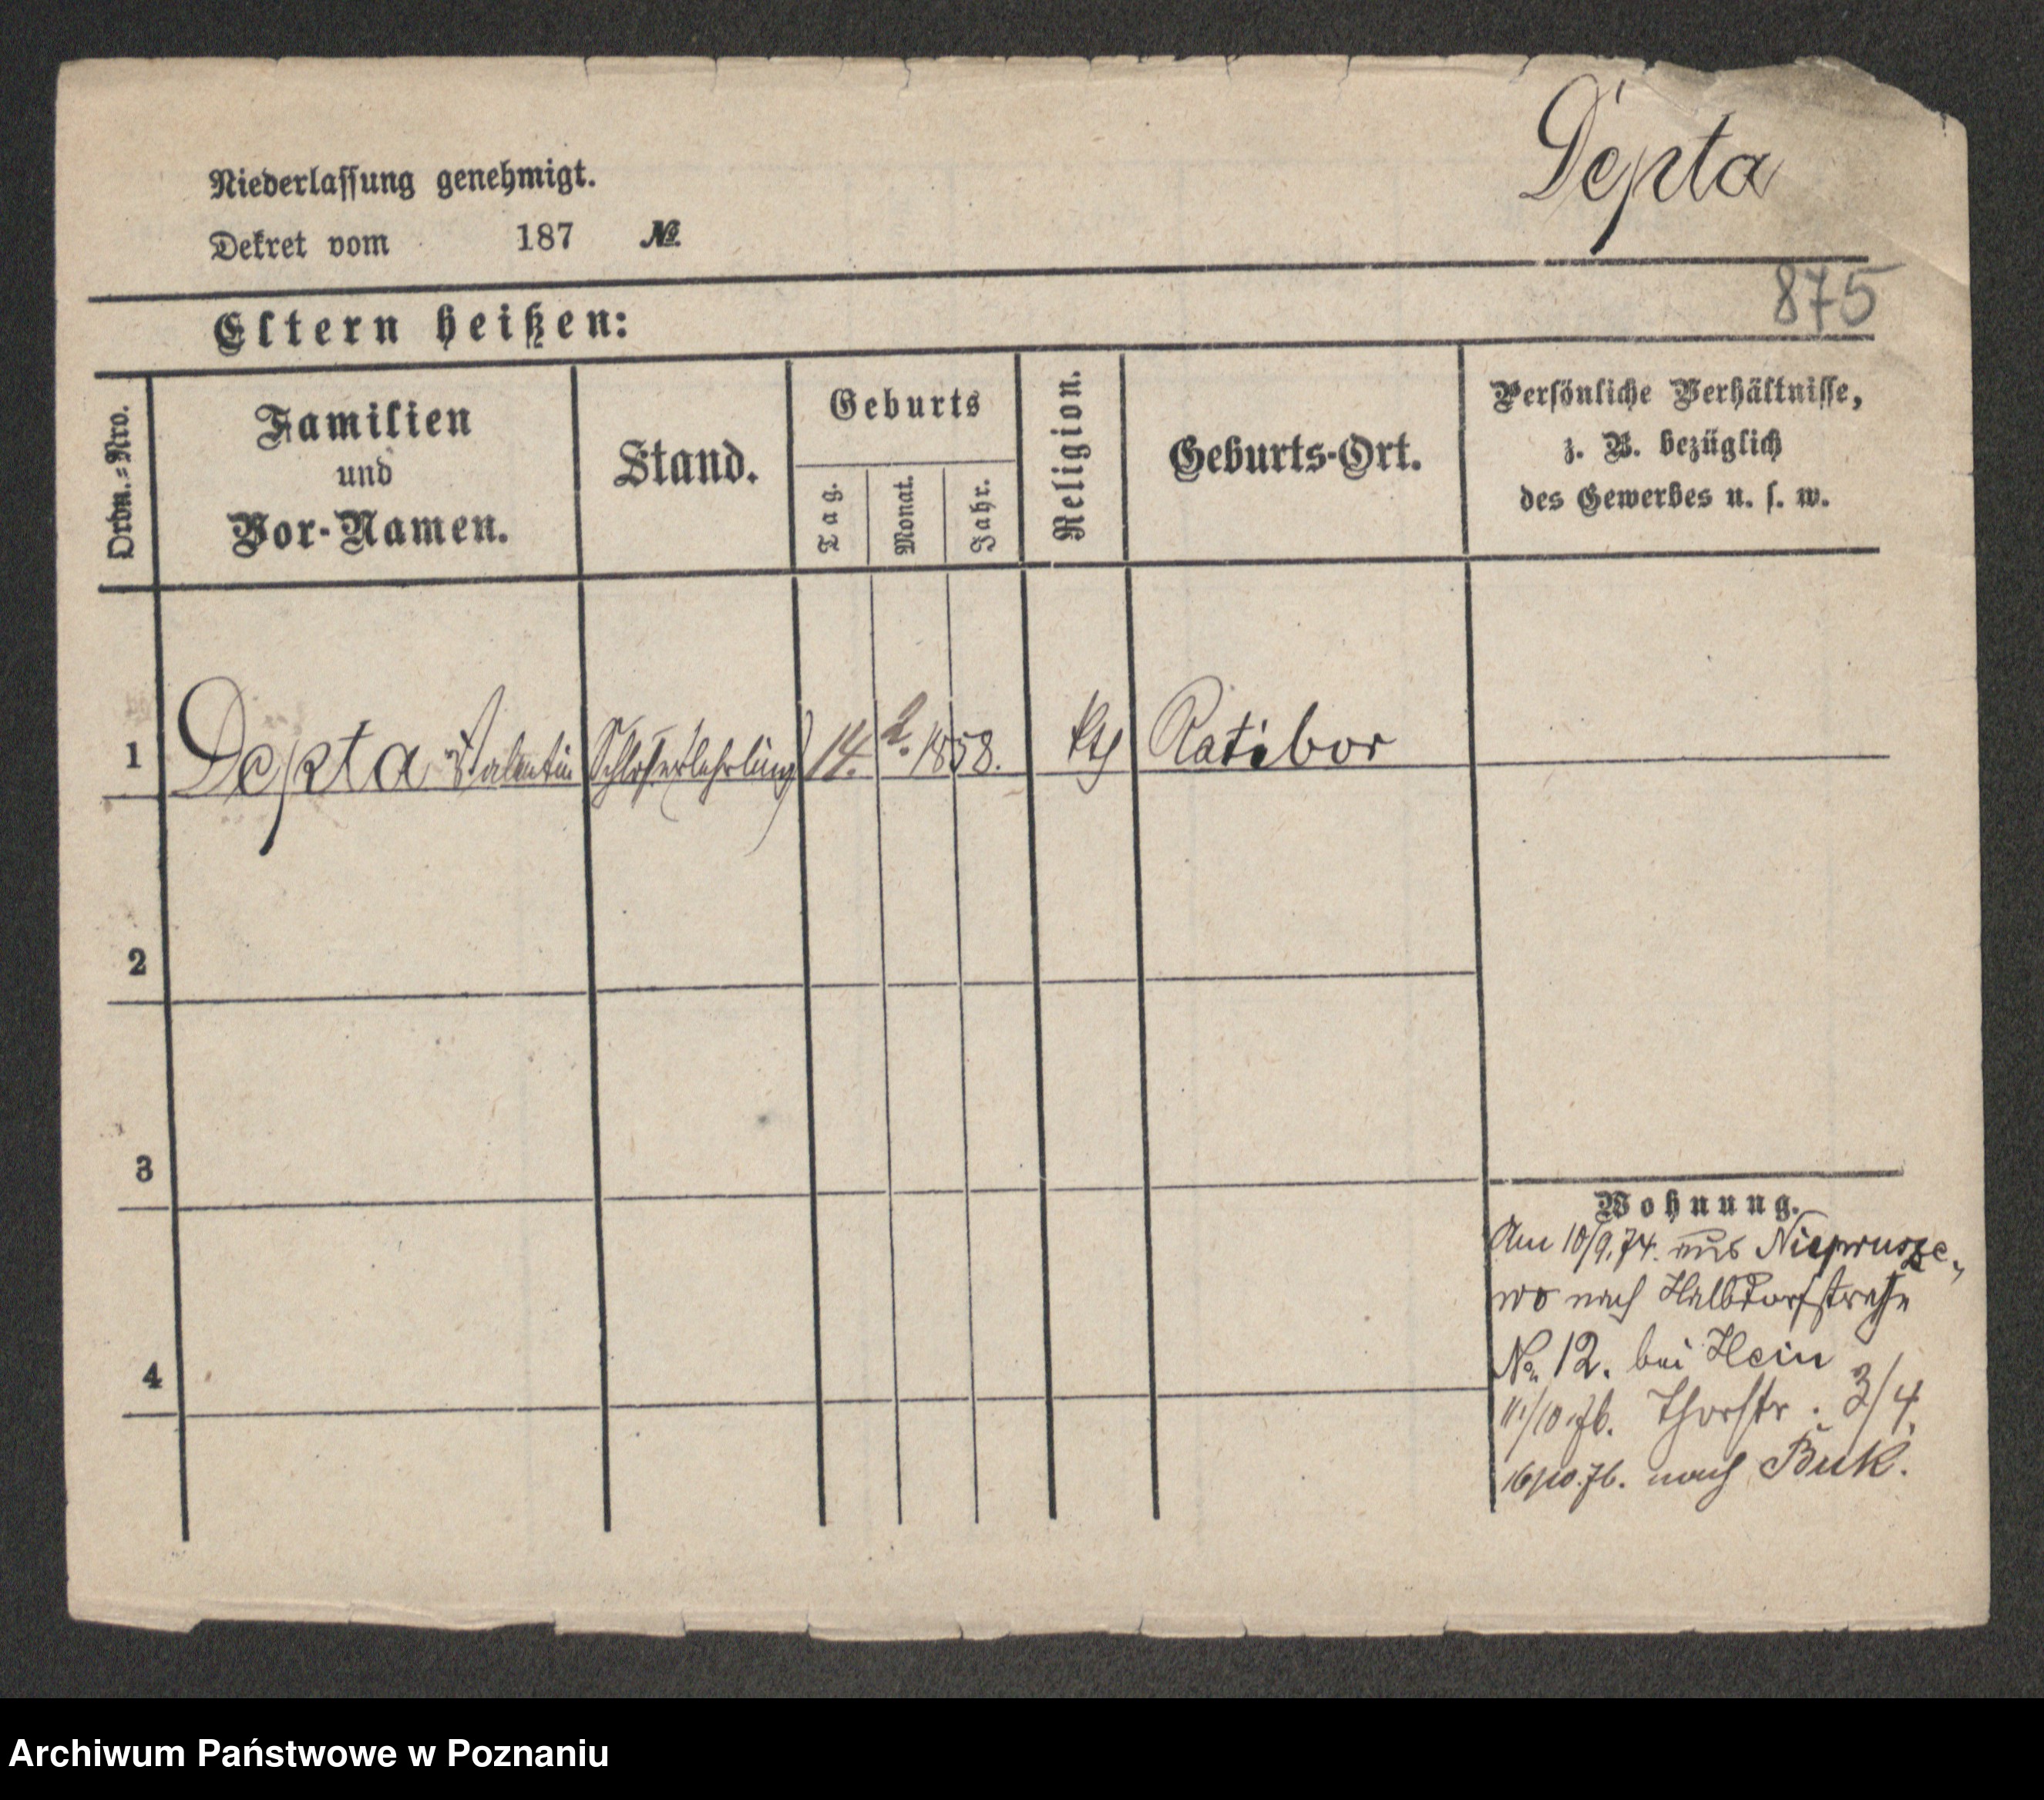 Depta
Niederlassung genehmigt.
Dekret vom 187 №
875
Eltern heißen:
Ordn.-Nro.
Familien
und
Vor-Namen.
Stand.
Geburts
Tag.
Monat.
Jahr.
Religion.
Geburts-Ort.
Persönliche Verhältnisse,
z. B. bezüglich
des Gewerbes u. s. w.
1 Depta Valentin Schlosserlehrling 14. 2. 1858. kth Ratibor
2
3
4
Wohnung.
Am 10/9.74. aus Nieprusze-
wo nach Halbdorfstraße
No. 12. bei Hein
11/10.76. Thorstr. 3/4.
16/10.76. nach Buk.
Archiwum Państwowe w Poznaniu